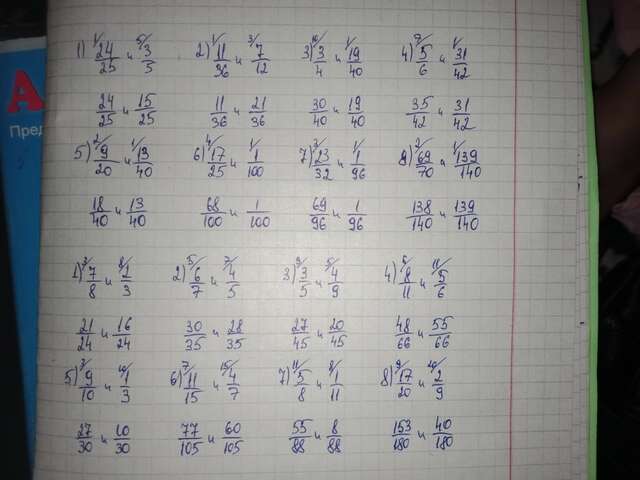 А
Пред
1) ¹⁄24/25 и ⁵⁄3/5 2) ¹⁄11/36 и ³⁄7/12 3) ¹⁰⁄3/4 и ¹⁄19/40 4) ⁷⁄5/6 и ¹⁄31/42
24/25 и 15/25 11/36 и 21/36 30/40 и 19/40 35/42 и 31/42
5) ²⁄9/20 и ¹⁄13/40 6) ⁴⁄17/25 и ¹⁄1/100 7) ³⁄23/32 и ¹⁄1/96 8) ²⁄69/70 и ¹⁄139/140
18/40 и 13/40 68/100 и 1/100 69/96 и 1/96 138/140 и 139/140
1) ³⁄7/8 и ⁸⁄2/3 2) ⁵⁄6/7 и ⁷⁄4/5 3) ⁹⁄3/5 и ⁵⁄4/9 4) ⁶⁄8/11 и ¹¹⁄5/6
21/24 и 16/24 30/35 и 28/35 27/45 и 20/45 48/66 и 55/66
5) ³⁄9/10 и ¹⁰⁄1/3 6) ⁷⁄11/15 и ¹⁵⁄4/7 7) ¹¹⁄5/8 и ⁸⁄1/11 8) ⁹⁄17/20 и ²⁰⁄2/9
27/30 и 10/30 77/105 и 60/105 55/88 и 8/88 153/180 и 40/180